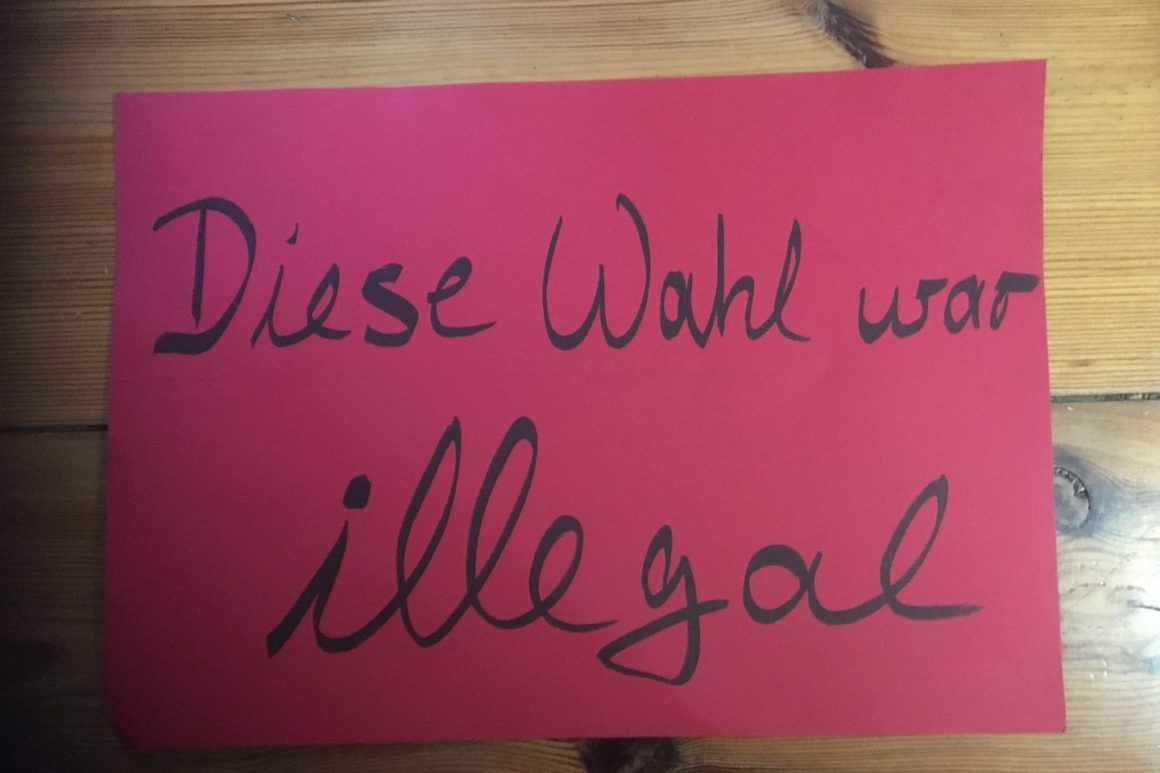 Diese Wahl war
illegal